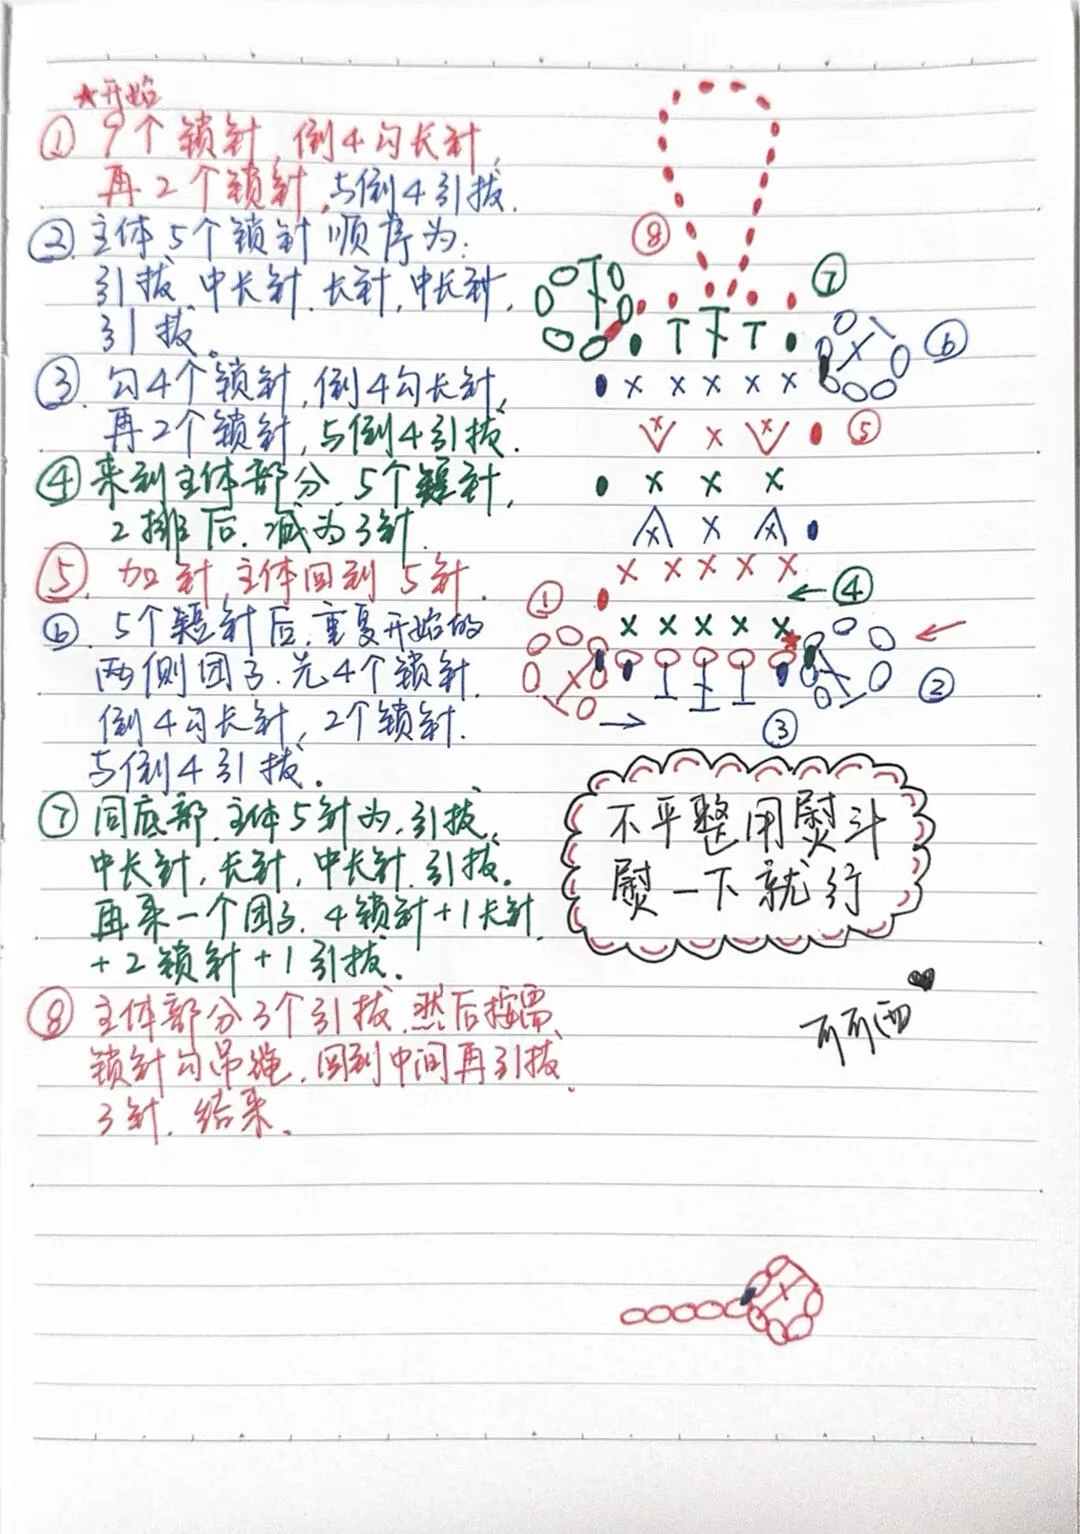 ★开始
① 9个锁针,倒4勾长针,
再2个锁针,与倒4引拔.
② 主体5个锁针顺序为:
引拔、中长针、长针,中长针,
引拔。
③ 勾4个锁针,倒4勾长针,
再2个锁针,与倒4引拔.
④ 来到主体部分、5个短针,
2排后,减为3针.
⑤ 加针,主体回到5针.
⑥ 5个短针后,重复开始的
两侧团子.先4个锁针.
倒4勾长针,2个锁针.
与倒4引拔.
⑦ 同底部,主体5针为,引拔、
中长针,长针,中长针,引拔.
再来一个团子,4锁针+1长针
+2锁针+1引拔.
⑧ 主体部分3个引拔,然后按需
锁针勾吊绳,回到中间再引拔
3针.结束.
⑧
⑦
⑥
⑤
④
①
②
③
不平整用熨斗
熨一下就行